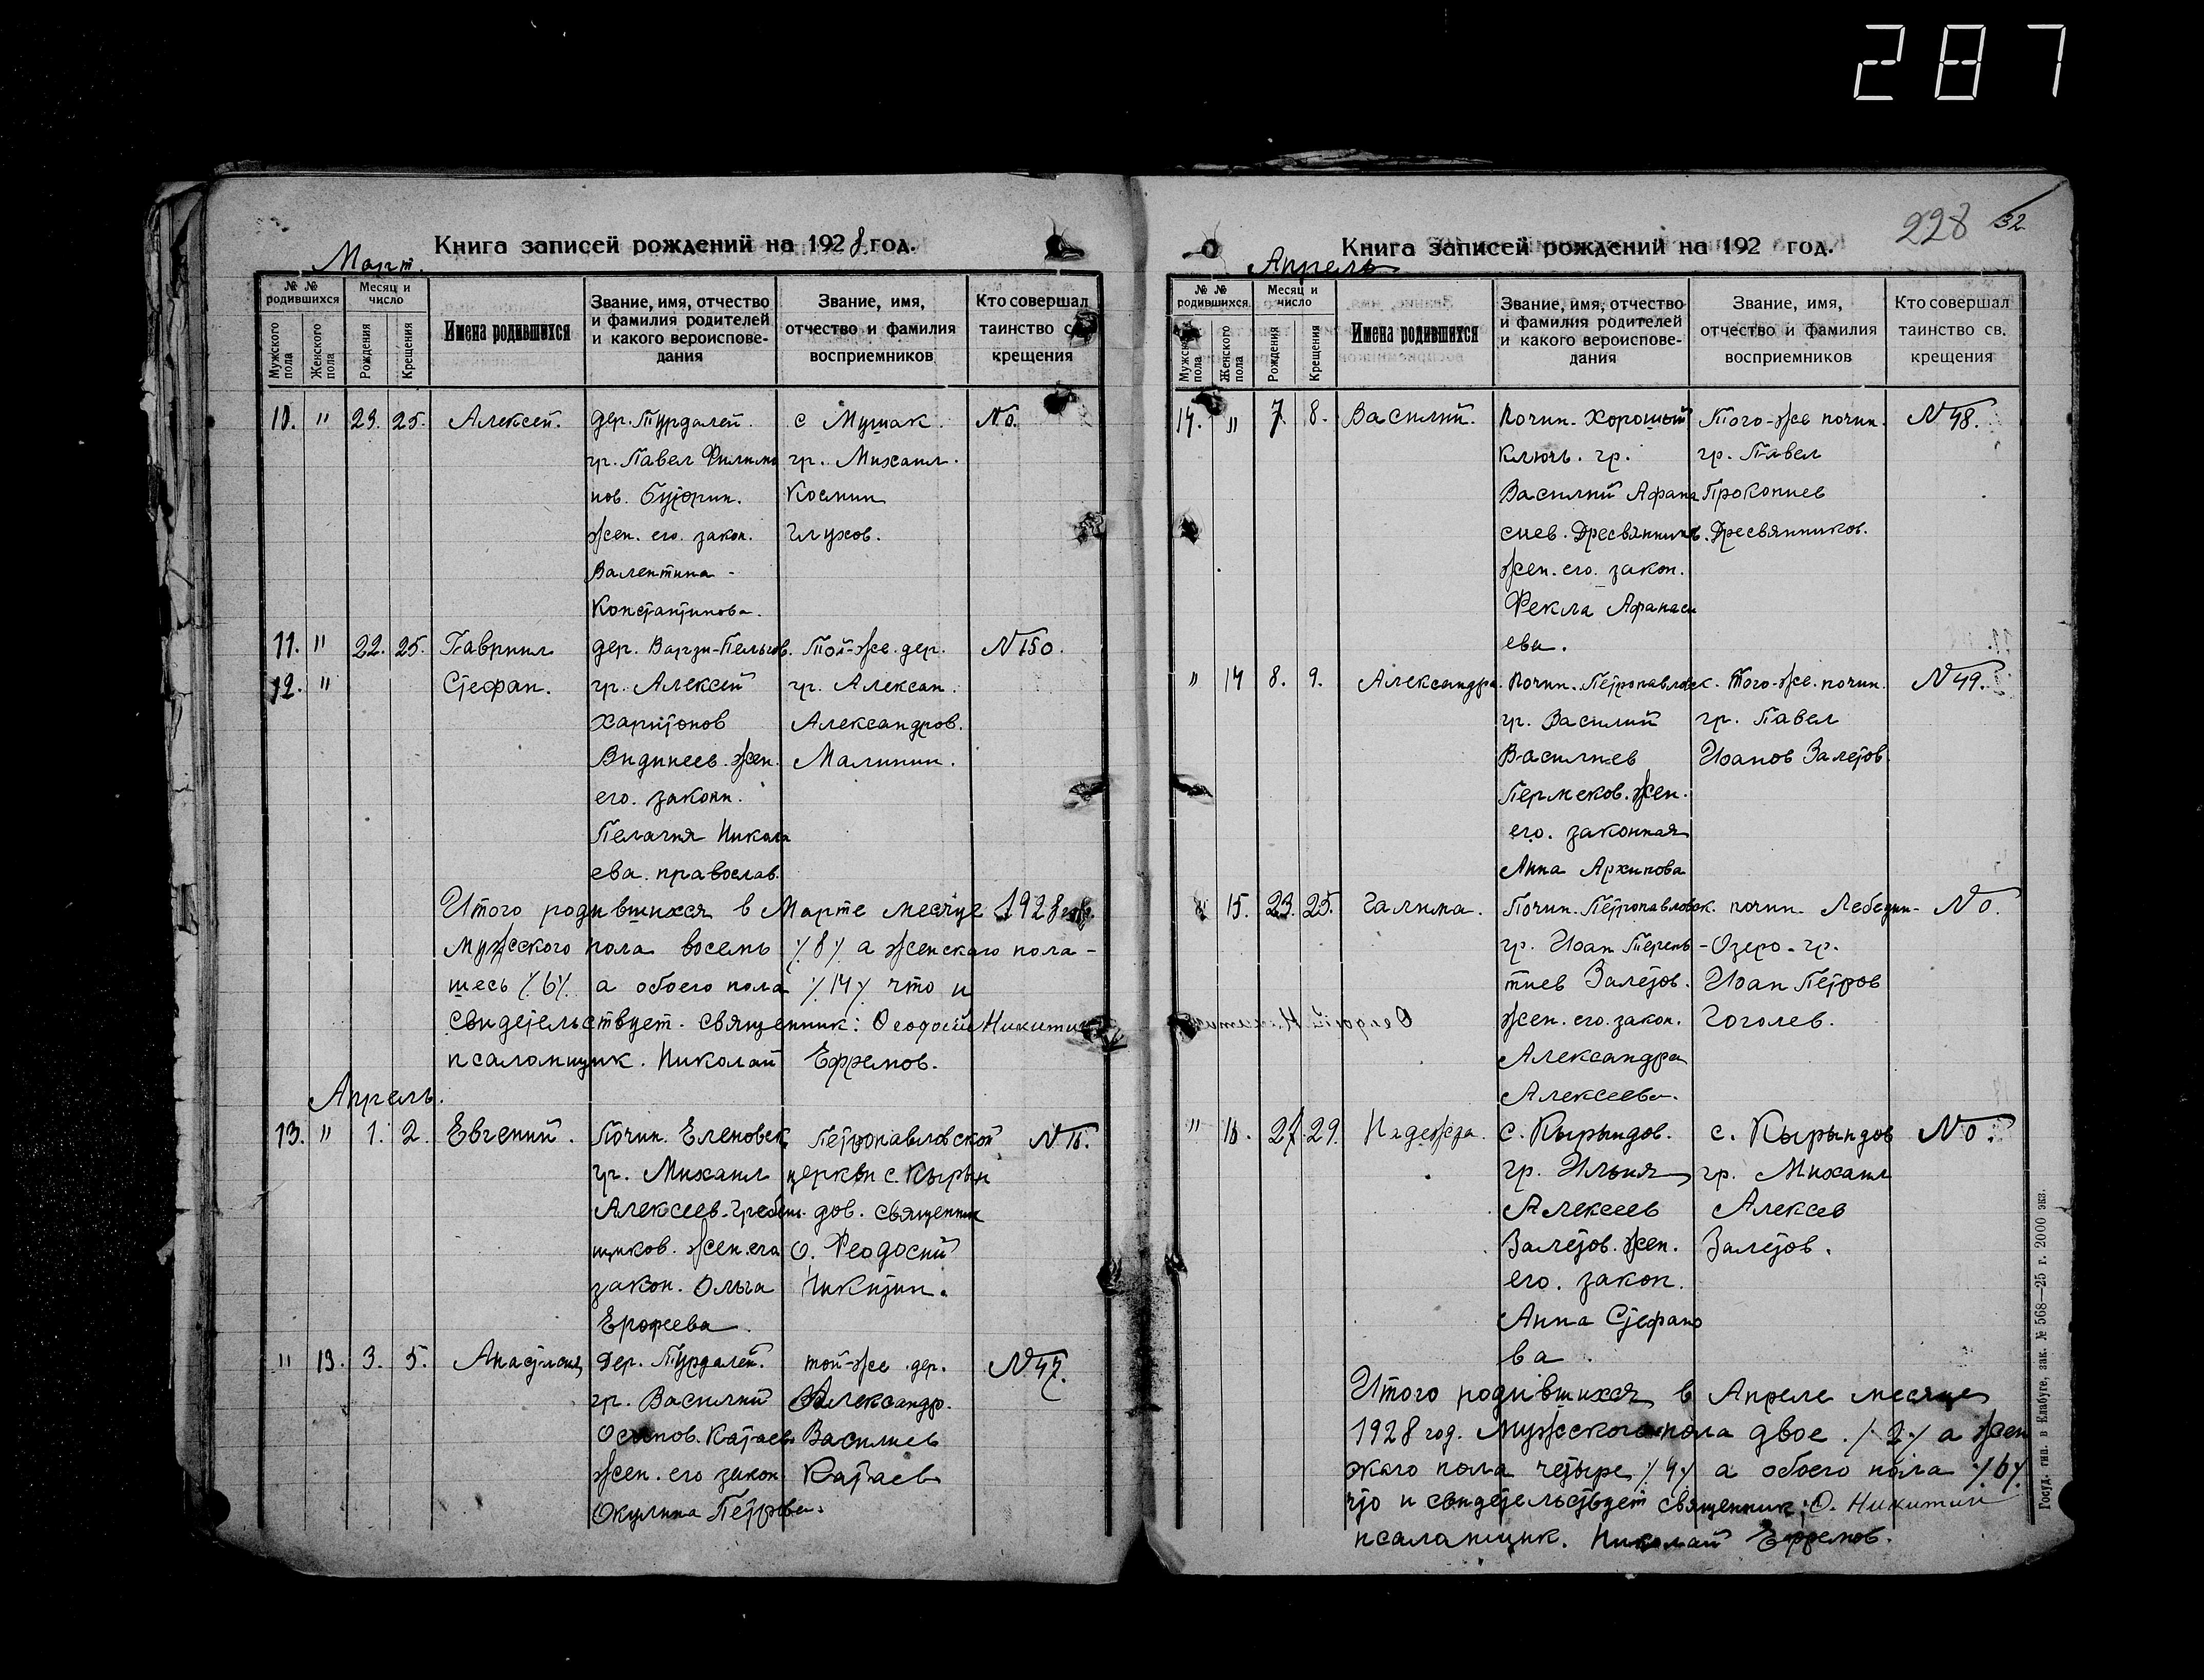 287
Книга записей рождений на 1928 год.
Март.
№ № родившихся
Месяц и число
Мужского пола
Женского пола
Рождения
Крещения
Имена родившихся
Звание, имя, отчество и фамилия родителей и какого вероиспове-дания
Звание, имя, отчество и фамилия восприемников
Кто совершал таинство св. крещения
10. " 23. 25. Алексей. дер. Турдалей. с Мушак. N 0.
гр. Павел Филимо гр. Михаил.
нов. Бутрин. Космин
жен. его. закон. Глухов.
Валентина -
Константинова.
11. " 22. 25. Гавриил дер. Варзи-Пельгов. Той-же. дер. N 150.
12. " Стефан. гр. Алексей гр. Алексан.
Харитонов Александров.
Видинеев. жен. Малинин.
его. законн.
Пелагия Никола
ева. православ.
Итого родившихся в Марте месяце 1928 год.
Мужского пола восемь /.8./ а женскаго пола -
шесь /.6./ а обоего пола /.14./ что и
свидетельствует. священник: Феодосий Никитин
псаломщик. Николай Ефремов.
Апрель.
13. " 1. 2. Евгений. Почин. Еленовск Петропавловской N 16.
гр. Михаил церкви с. Кырын
Алексеев. Гребен- дов. священник
щиков. жен. его О. Феодосий
закон. Ольга Никитин.
Ерофеева.
" 13. 3. 5. Анастасия Дер. Турдалей. той-же дер. N 47.
гр. Василий Александр.
Осипов. Катаев Василиев
жен. его закон. Катаев
Окулина Петрова.
228 32
Книга записей рождений на 192 год.
Апрель
№ № родившихся
Месяц и число
Мужского пола
Женского пола
Рождения
Крещения
Имена родившихся
Звание, имя, отчество и фамилия родителей и какого вероиспове-дания
Звание, имя, отчество и фамилия восприемников
Кто совершал таинство св. крещения
14. " 7. 8. Василий. Почин. Хороший Того-же почин. N 48.
Ключь. гр. гр. Павел
Василий Афана Прокопиев
сиев. Дресвянников. Дресвянников.
жен. его. закон.
Фекла Афанаси
ева.
" 14 8. 9. Александра. Почин. Петропавловск. Того-же. почин. N 49.
гр. Василий гр. Павел
Василиев Иоанов Залетов.
Пермеков. жен.
его. законная
Анна Архипова
" 15. 23. 25. Галина. Почин. Петропавловск. почин. Лебедин- N 0.
гр. Иоан Терень -Озеро. гр.
тиев Залетов. Иоан Петров
жен. его. закон. Гоголев.
Александра
Алексеева.
" 16. 27. 29. Надежда. с. Кырындов. с. Кырындов N 0.
гр. Илья гр. Михаил
Алексеев Алексеев
Залетов. жен. Залетов.
его. закон.
Анна Стефано
ва.
Итого родившихся в Апреле месяце
1928 год. Мужского пола двое. /.2./ а жен
скаго пола четыре /.4./ а обоего пола /.6./
что и свидетельствует священник: О. Никитин
псаломщик. Николай Ефремов.
Госуд. тип. в Елабуге, зак. № 568—25 г. 2000 экз.